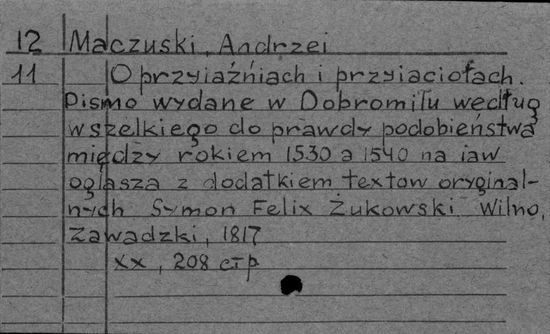 12 Maczuski, Andrzei
11 O przyiaźniach i przyiaciołach.
Pismo wydane w Dobromilu według
wszelkiego do prawdy podobieństwa
między rokiem 1530 a 1540 na iaw
ogłasza z dodatkiem textow oryginal-
nych Symon Felix Żukowski Wilno,
Zawadzki, 1817
XX, 208 стр